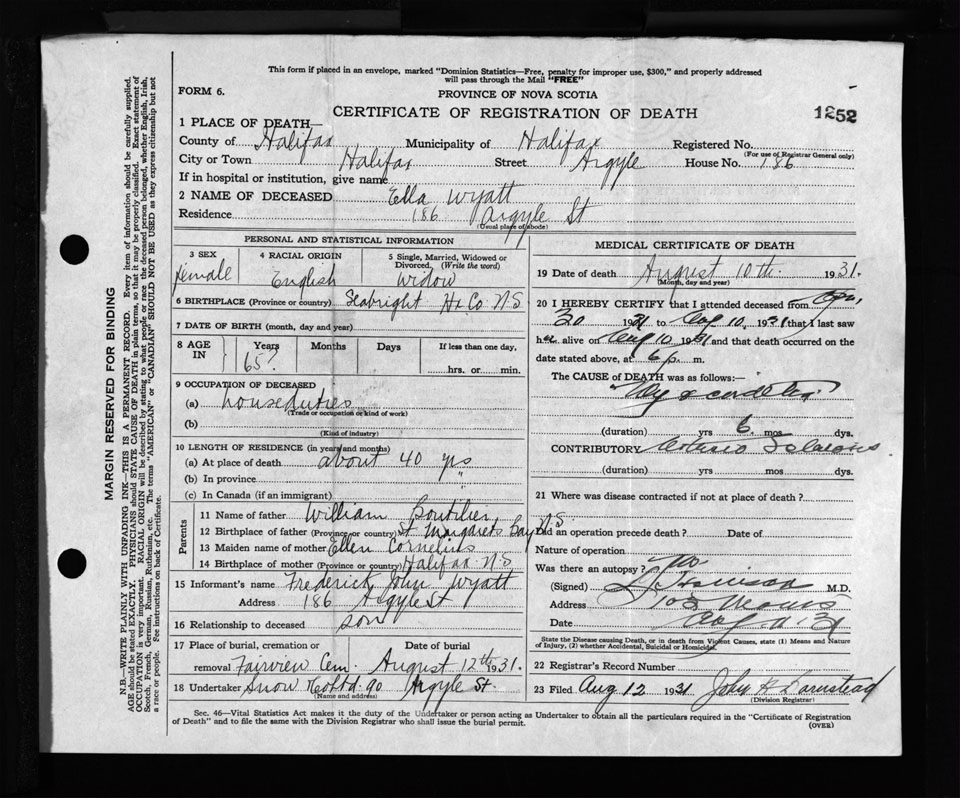 This form if placed in an envelope, marked "Dominion Statistics—Free, penalty for improper use, $300," and properly addressed
will pass through the Mail "FREE"
FORM 6.
PROVINCE OF NOVA SCOTIA
CERTIFICATE OF REGISTRATION OF DEATH
1252
1 PLACE OF DEATH—
County of Halifax Municipality of Halifax Registered No.
(For use of Registrar General only)
City or Town Halifax Street Argyle House No. 186
If in hospital or institution, give name
2 NAME OF DECEASED Ella Wyatt
Residence 186 Argyle St
(Usual place of abode)
PERSONAL AND STATISTICAL INFORMATION
3 SEX
female
4 RACIAL ORIGIN
English
5 Single, Married, Widowed or
Divorced, (Write the word)
widow
6 BIRTHPLACE (Province or country) Seabright Hx Co N.S
7 DATE OF BIRTH (month, day and year)
8 AGE IN
Years Months Days If less than one day,
65? hrs. or min.
9 OCCUPATION OF DECEASED
(a) house duties
(Trade or occupation or kind of work)
(b)
(Kind of industry)
10 LENGTH OF RESIDENCE (in years and months)
(a) At place of death about 40 yrs
(b) In province "
(c) In Canada (if an immigrant)
Parents
11 Name of father William Boutilier
12 Birthplace of father (Province or country) St Margarets Bay N.S
13 Maiden name of mother Ellen Cornelius
14 Birthplace of mother (Province or country) Halifax N.S
15 Informant's name Frederick John Wyatt
Address 186 Argyle St
16 Relationship to deceased son
17 Place of burial, cremation or Date of burial
removal Fairview Cem. August 12th 1931.
18 Undertaker Snow & Co Ltd. 90 Argyle St.
(Name and address)
MEDICAL CERTIFICATE OF DEATH
19 Date of death August 10th. 1931.
(Month, day and year)
20 I HEREBY CERTIFY that I attended deceased from
30 1931 to Aug 10, 1931 that I last saw
her alive on Aug 10 1931 and that death occurred on the
date stated above, at 6 p. m.
The CAUSE of DEATH was as follows:—
(duration) yrs 6 mos dys.
CONTRIBUTORY
(duration) yrs. mos. dys.
21 Where was disease contracted if not at place of death?
Did an operation precede death? Date of
Nature of operation
Was there an autopsy? No
(Signed) M.D.
Address
Date Aug 11.31
State the Disease causing Death, or in death from Violent Causes, state (1) Means and Nature
of Injury, (2) whether Accidental, Suicidal or Homicidal.
22 Registrar's Record Number
23 Filed Aug 12 1931 John
(Division Registrar)
Sec. 46—Vital Statistics Act makes it the duty of the Undertaker or person acting as Undertaker to obtain all the particulars required in the "Certificate of Registration
of Death" and to file the same with the Division Registrar who shall issue the burial permit.
(OVER)
MARGIN RESERVED FOR BINDING
N.B.—WRITE PLAINLY WITH UNFADING INK—THIS IS A PERMANENT RECORD. Every item of information should be carefully supplied.
AGE should be stated EXACTLY. PHYSICIANS should STATE CAUSE OF DEATH in plain terms, so that it may be properly classified. Exact statement of
OCCUPATION is very important. RACIAL ORIGIN will be described by stating to what people or race the deceased person belonged, whether English, Irish,
Scotch, French, German, Russian, Ruthenian, etc. The terms "AMERICAN" or "CANADIAN" SHOULD NOT BE USED as they express citizenship but not
a race or people. See instructions on back of Certificate.